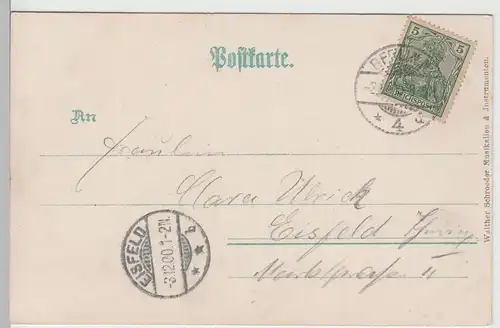 Postkarte.
5 5
REICHSPOST
BERLIN
4
An
Fräulein
Clara Ulrich
Eisfeld Thüring.
Marktstrasse 11
EISFELD
-3.12.00.1-2N.
* * b
Walther Schroeder Musikalien & Instrumenten.